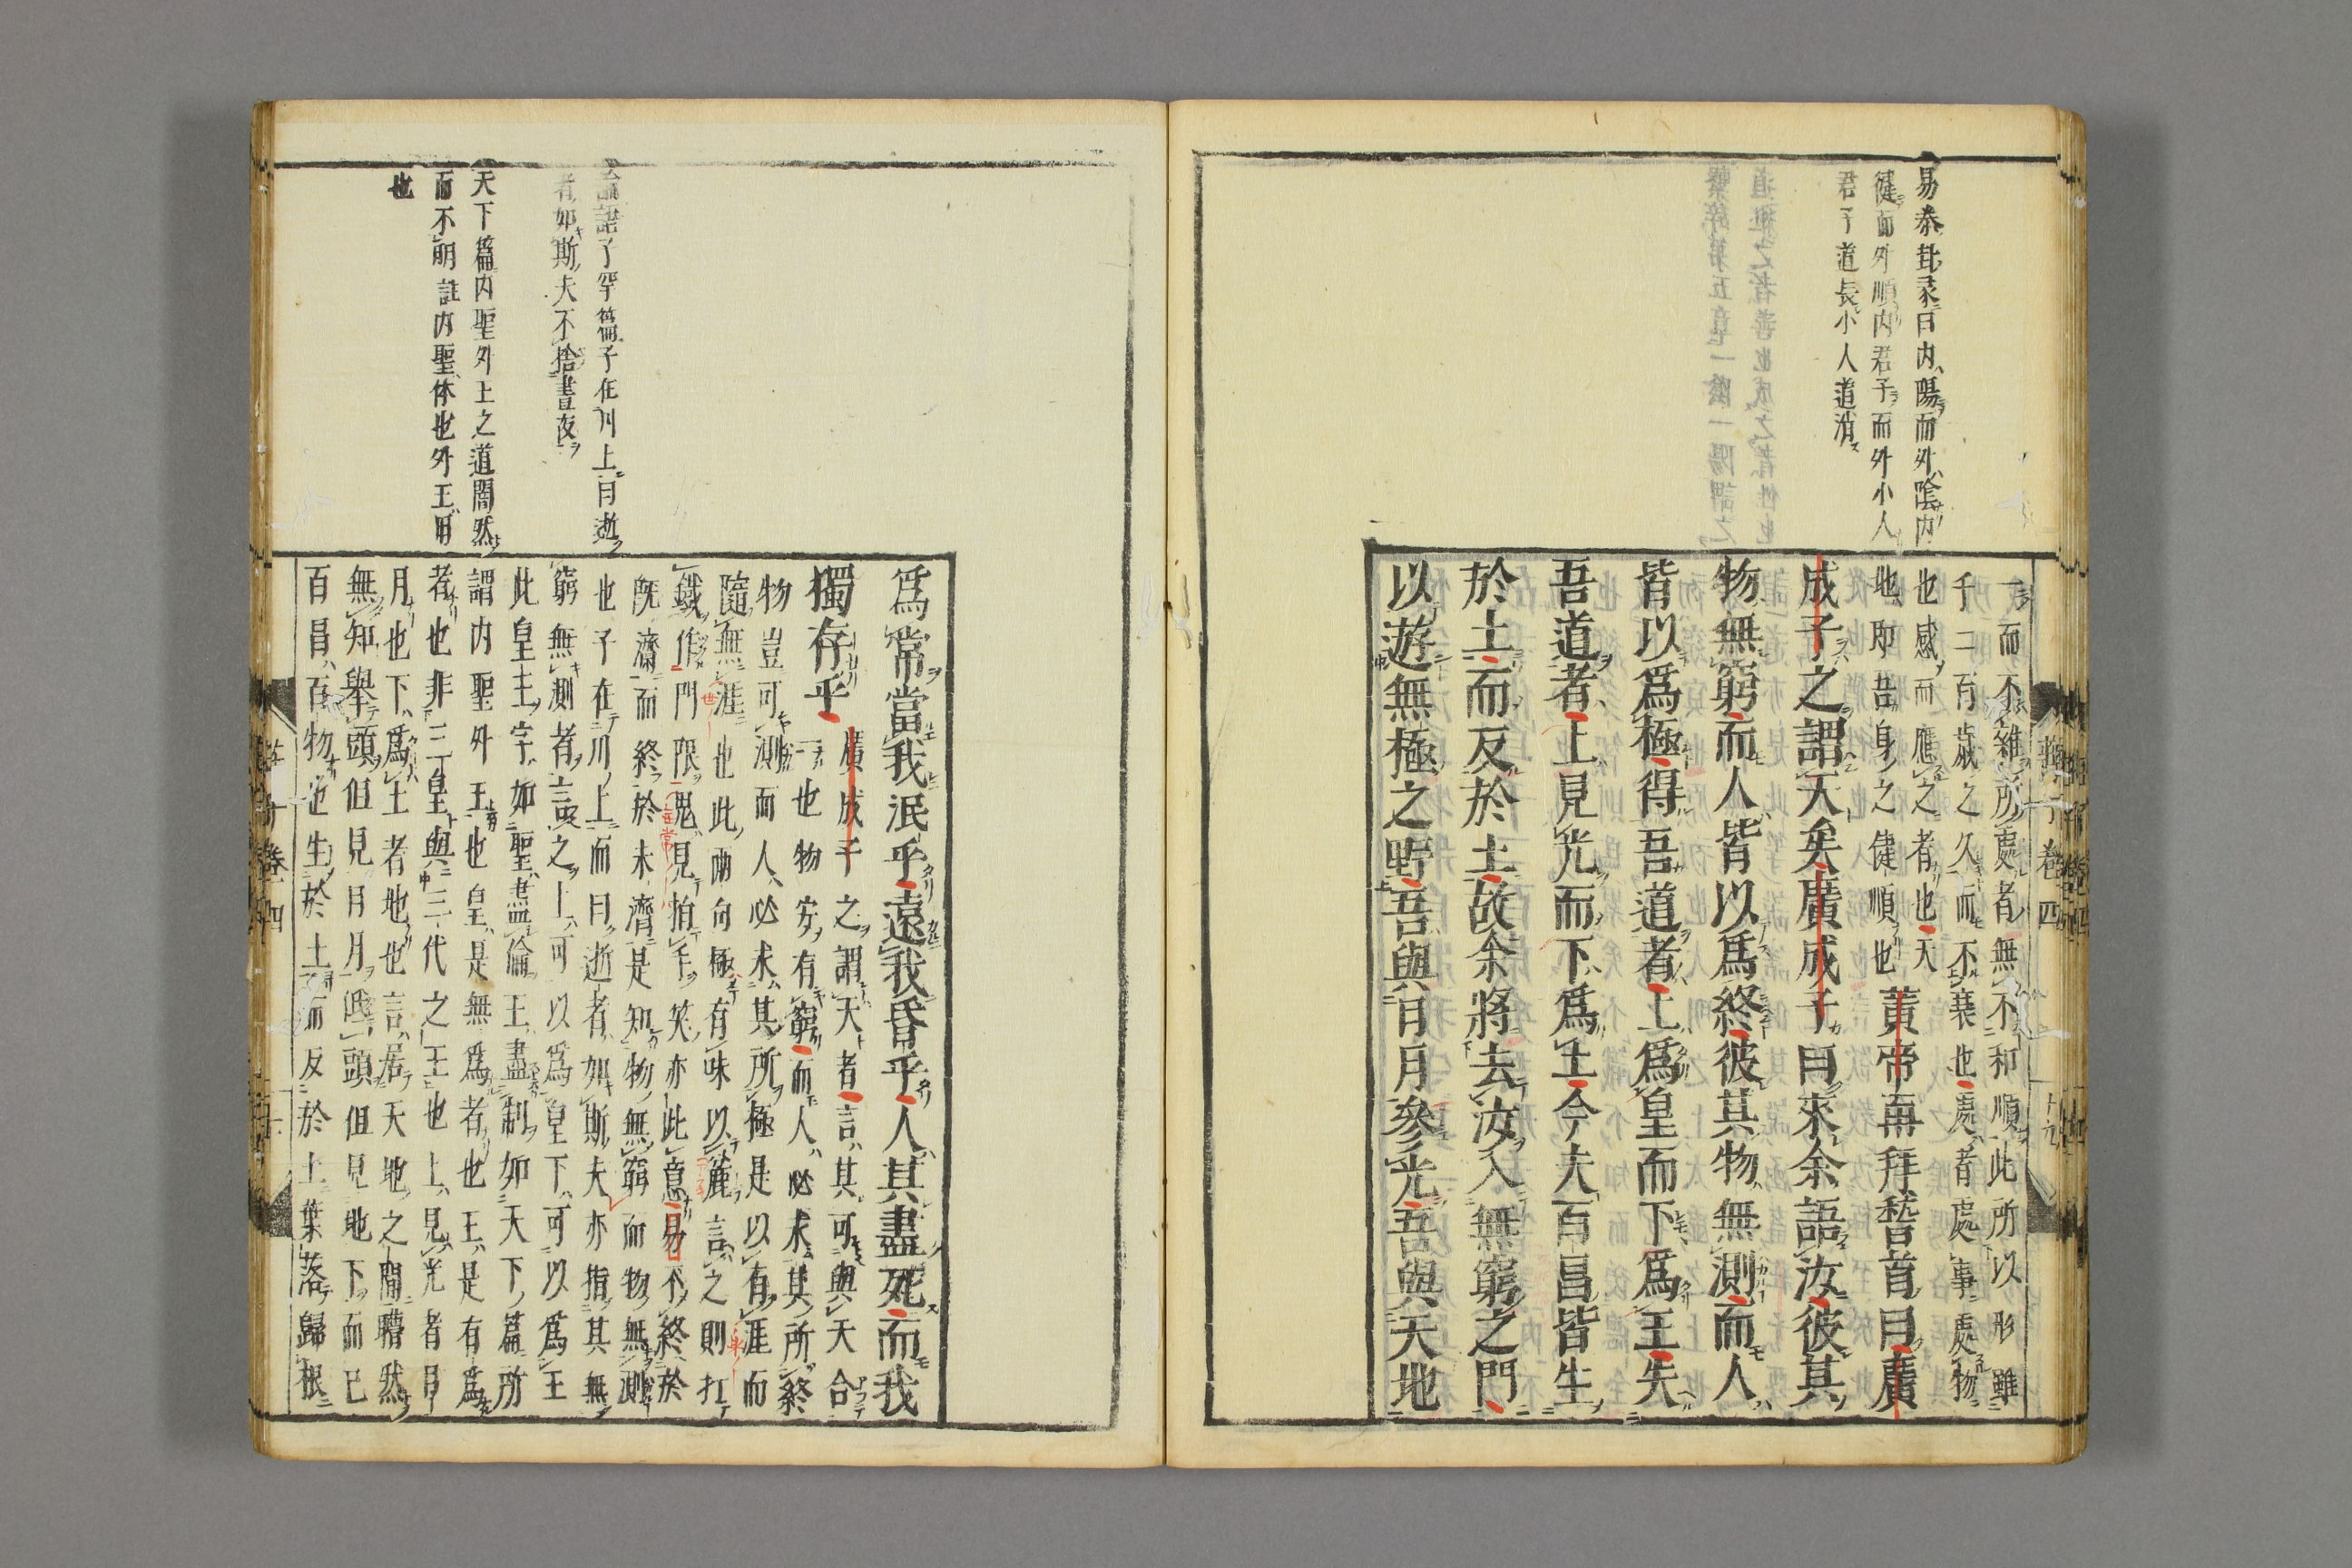 易泰卦彖曰内陽而外陰内
健而外順内君子而外小人
君子道長小人道消
一而不雜所處者無不和順此所以形雖
千二百歳之久而不衰也處者處事處物
也感而應之者也天
地即吾身之健順也
黄帝再拜稽首曰廣
成子之謂天矣廣成子曰來余語汝彼其
物無窮而人皆以爲終彼其物無測而人
皆以爲極得吾道者上爲皇而下爲王失
吾道者上見光而下爲土今夫百昌皆生
於土而反於土故余將去汝入無窮之門
以遊無極之野吾與日月參光吾與天地
論語子罕篇子在川上曰逝
者如斯夫不捨晝夜
天下篇内聖外王之道闇然
而不明註内聖体也外王用
也
爲常當我泯乎遠我昏乎人其盡死而我
獨存乎
廣成子之謂天者言其可與天合
一也物安有窮而人必求其所終
物豈可測而人必求其所極是以有涯而
隨無涯也此兩句極有味以麓言之則扛
鐵作門限鬼見拍手笑亦此意易不終於
既濟而終於未濟是知物無窮而物無測
也子在川上而曰逝者如斯夫亦指其無
窮無測者言之上可以爲皇下可以爲王
此皇王字如聖盡倫王盡制如天下篇所
謂内聖外王也皇是無爲者也王是有爲
者也非三皇與三代之王也上見光者日
月也下爲土者地也言居天地之間瞢然
無知舉頭但見日月低頭但見地下而已
百昌百物也生於土而反於土葉落歸根